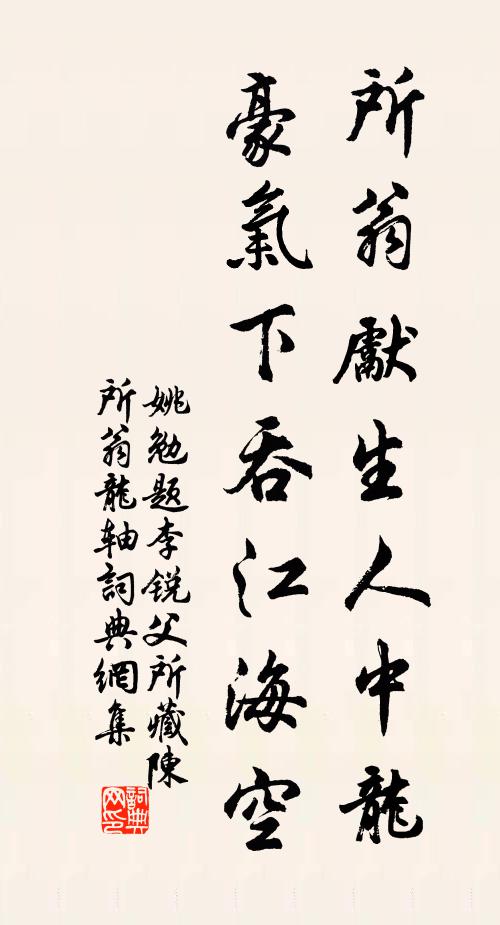 所翁獻生人中龍
豪氣下吞江海空
姚勉题李锐父所藏陳
所翁龍轴詞典網集
詞典网印